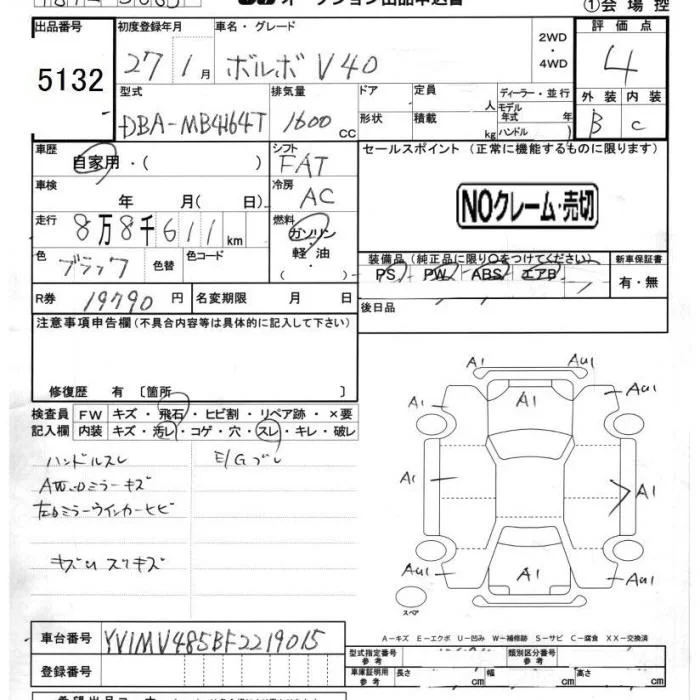 オークション出品申込書 ①会場控
出品番号 5132
初度登録年月 27 1月
車名・グレード ボルボ V40
2WD・4WD
評価点 4
外装 B 内装 C
型式 DBA-MB4164T
排気量 1600cc
ドア 形状
定員 人 積載 kg
ディーラー・並行
モデル年式 年
ハンドル
車歴 自家用・( )
シフト FAT
セールスポイント(正常に機能するものに限ります)
NOクレーム・売切
車検 年 月(日)
冷房 AC
走行 8万8千611km
燃料 ガソリン・軽油・( )
色 ブラック 色替 色コード
装備品(純正品に限り○をつけてください)
PS PW ABS エアB
新車保証書 有・無
R券 19790円
名変期限 月 日
後日品
注意事項申告欄(不具合内容等は具体的に記入して下さい)
修復歴 有〔箇所 〕
検査員記入欄
FW キズ・飛石・ヒビ割・リペア跡・×要
内装 キズ・汚レ・コゲ・穴・スレ・キレ・破レ
ハンドルスレ E/Gブレ
AW・Dミラーキズ
左Dミラーウインカーヒビ
キズU スリキズ
A1 AU1
A1 A1 AU1
A1 A1
AU1 A1 AU1
スペア
A-キズ E-エクボ U-凹み W-補修跡 S-サビ C-腐食 XX-交換済
車台番号 YV1MV485BF2219015
登録番号
型式指定番号 参考
類別区分番号 参考
車庫証明用 参考 長さ 幅 高さ